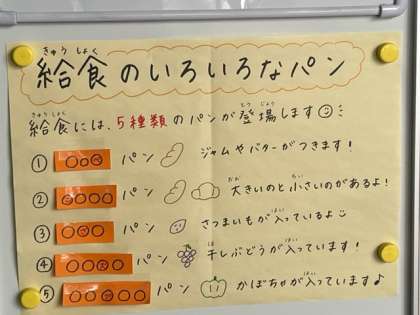 きゅう しょく
給食のいろいろなパン
きゅう しょく とう じょう
給食には、5種類のパンが登場します
① ○○○ パン ジャムやバターがつきます!
② ○○○○ パン 大きいのと小さいのがあるよ!
はい
③ ○○○ パン さつまいもが入っているよ
ほ はい
④ ○○○○ パン 干しぶどうが入っています!
はい
⑤ ○○○○○ パン かぼちゃが入っています♪